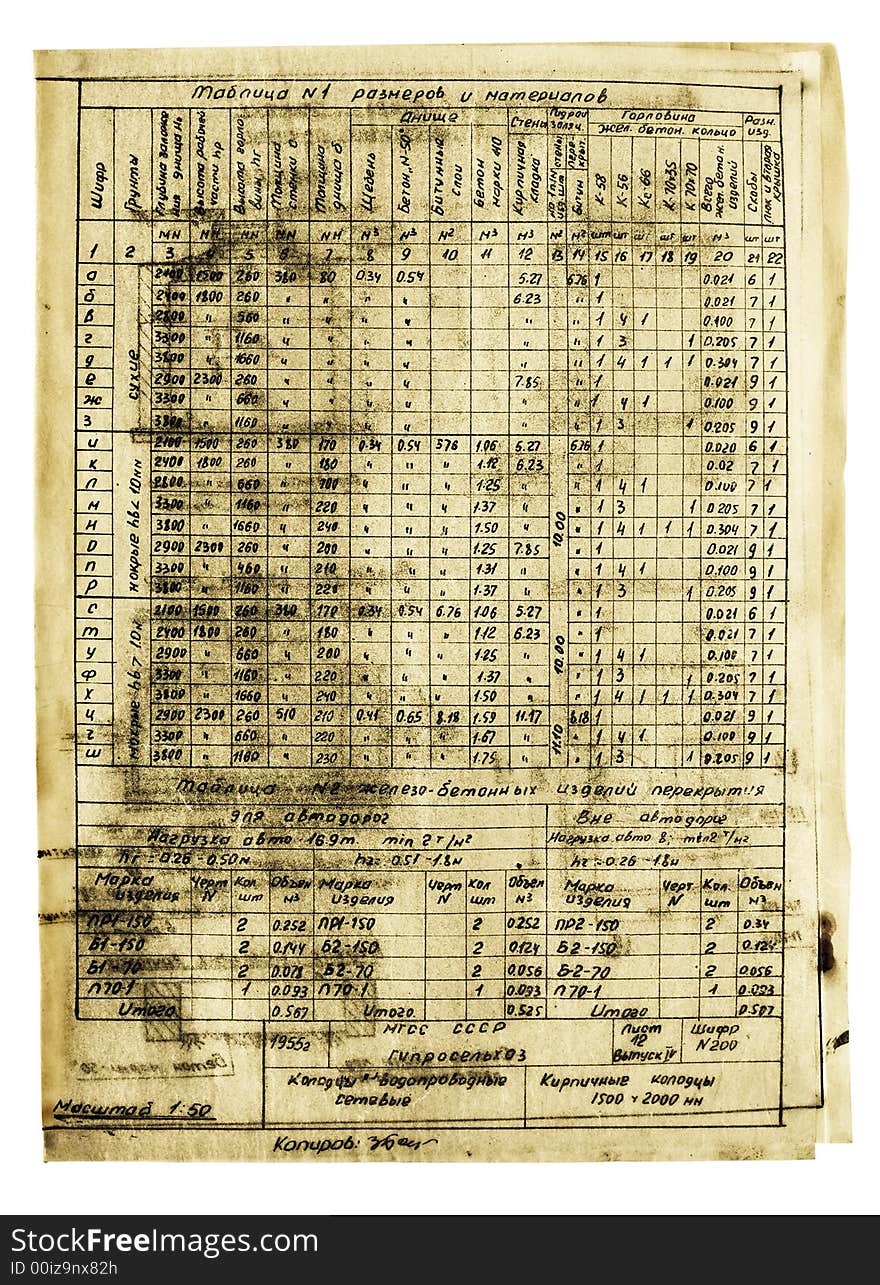 Таблица N1 размеров и материалов
Шифр Грунты Глубина заложения днища Hь Высота рабочей части hр Высота горловины, hг Толщина стенки Толщина днища б Днище Стены Гидроизоляц. Горловина Разн. изд.
Щебень Бетон „N-50" Битумные слои Бетон марки 110 Кирпичная кладка Битум жел. бетон. кольцо К-58 К-56 Кс-66 К-70×35 К 70×70 Всего жел бетон. изделий Скобы Люк и вторая крышка
мм мм мм мм мм м³ м³ м² м³ м³ м² м² шт шт шт шт шт м³ шт шт
1 2 3 4 5 6 7 8 9 10 11 12 13 14 15 16 17 18 19 20 21 22
сухие
а 2100 1500 260 380 80 0.34 0.54 5.27 6.76 1 0.021 6 1
б 2400 1800 260 " " " " 6.23 " 1 0.021 7 1
в 2800 " 560 " " " " " " 1 4 1 0.100 7 1
г 3300 " 1160 " " " " " " 1 3 1 0.205 7 1
д 3800 " 1660 " " " " " " 1 4 1 1 1 0.304 7 1
е 2900 2300 260 " " " " 7.85 " 1 0.021 9 1
ж 3300 " 660 " " " " " " 1 4 1 0.100 9 1
з 3800 " 1160 " " " " " " 1 3 1 0.205 9 1
мокрые hв < 1.0мн
и 2100 1500 260 380 170 0.34 0.54 576 1.06 5.27 6.76 1 0.020 6 1
к 2400 1800 260 " 180 " " " 1.12 6.23 " 1 0.02 7 1
л 2800 " 660 " 200 " " " 1.25 " " 1 4 1 0.100 7 1
м 3300 " 1160 " 220 " " " 1.37 " " 1 3 1 0.205 7 1
н 3800 " 1660 " 240 " " " 1.50 " 10.00 " 1 4 1 1 1 0.304 7 1
о 2900 2300 260 " 200 " " " 1.25 7.85 " 1 0.021 9 1
п 3300 " 460 " 210 " " " 1.31 " " 1 4 1 0.100 9 1
р 3800 " 1160 " 220 " " " 1.37 " 1 3 1 0.205 9 1
мокрые hв > 1.0м
с 2100 1500 260 380 170 0.34 0.54 6.76 1.06 5.27 " 1 0.021 6 1
т 2400 1800 260 " 180 " " " 1.12 6.23 " 1 0.021 7 1
у 2900 " 660 " 200 " " " 1.25 " 10.00 " 1 4 1 0.100 7 1
ф 3300 " 1160 " 220 " " " 1.37 " " 1 3 1 0.205 7 1
х 3800 " 1660 " 240 " " " 1.50 " " 1 4 1 1 1 0.304 7 1
ц 2900 2300 260 510 210 0.41 0.65 8.18 1.59 11.17 8.18 1 0.021 9 1
г 3300 " 660 " 220 " " " 1.67 " 11.10 " 1 4 1 0.100 9 1
ш 3800 " 1160 " 230 " " " 1.75 " " 1 3 1 0.205 9 1
Таблица N2 железо-бетонных изделий перекрытия
для автодорог Вне автодорог
Нагрузка авто 16.9т. min 2 т/м² Нагрузка авто 8, min 2 т/м2
hг = 0.26 - 0.50м hг = 0.51 - 1.8м hг = 0.26 - 1.8м
Марка изделия Черт N Кол шт Объем м³ Марка изделия Черт N Кол шт Объем м³ Марка изделия Черт N Кол. шт Объем м³
ПР1-150 2 0.252 ПР1-150 2 0.252 ПР2-150 2 0.34
Б1-150 2 0.144 Б2-150 2 0.124 Б2-150 2 0.124
Б1-70 2 0.078 Б2-70 2 0.056 Б-2-70 2 0.056
П70-1 1 0.093 П70-1 1 0.093 П70-1 1 0.093
Итого 0.567 Итого. 0.525 Итого 0.507
1955г МГСС СССР Лист 12 Шифр N200
Гипросельхоз Выпуск IV
Колодцы водопроводные сетевые
Кирпичные колодцы 1500 ÷ 2000 мм
Масштаб 1:50
Копиров:
StockFreeImages.com
ID 00iz9nx82h